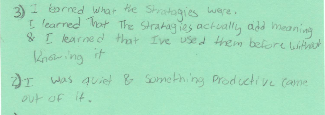 3) I larned what the Stratagies were.
I learned That The Stratagies actually add meaning
& I learned that I've used them before without
Knowing it
2) I was quiet & Something Productive came
out of it.